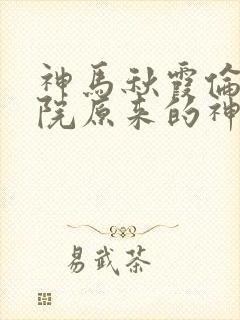 神馬秋霞倫
院原来的神
易武茶